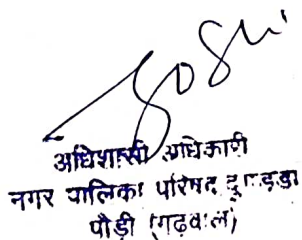 अधिशासी अधिकारी
नगर पालिका परिषद दुगड्डा
पौड़ी (गढ़वाल)